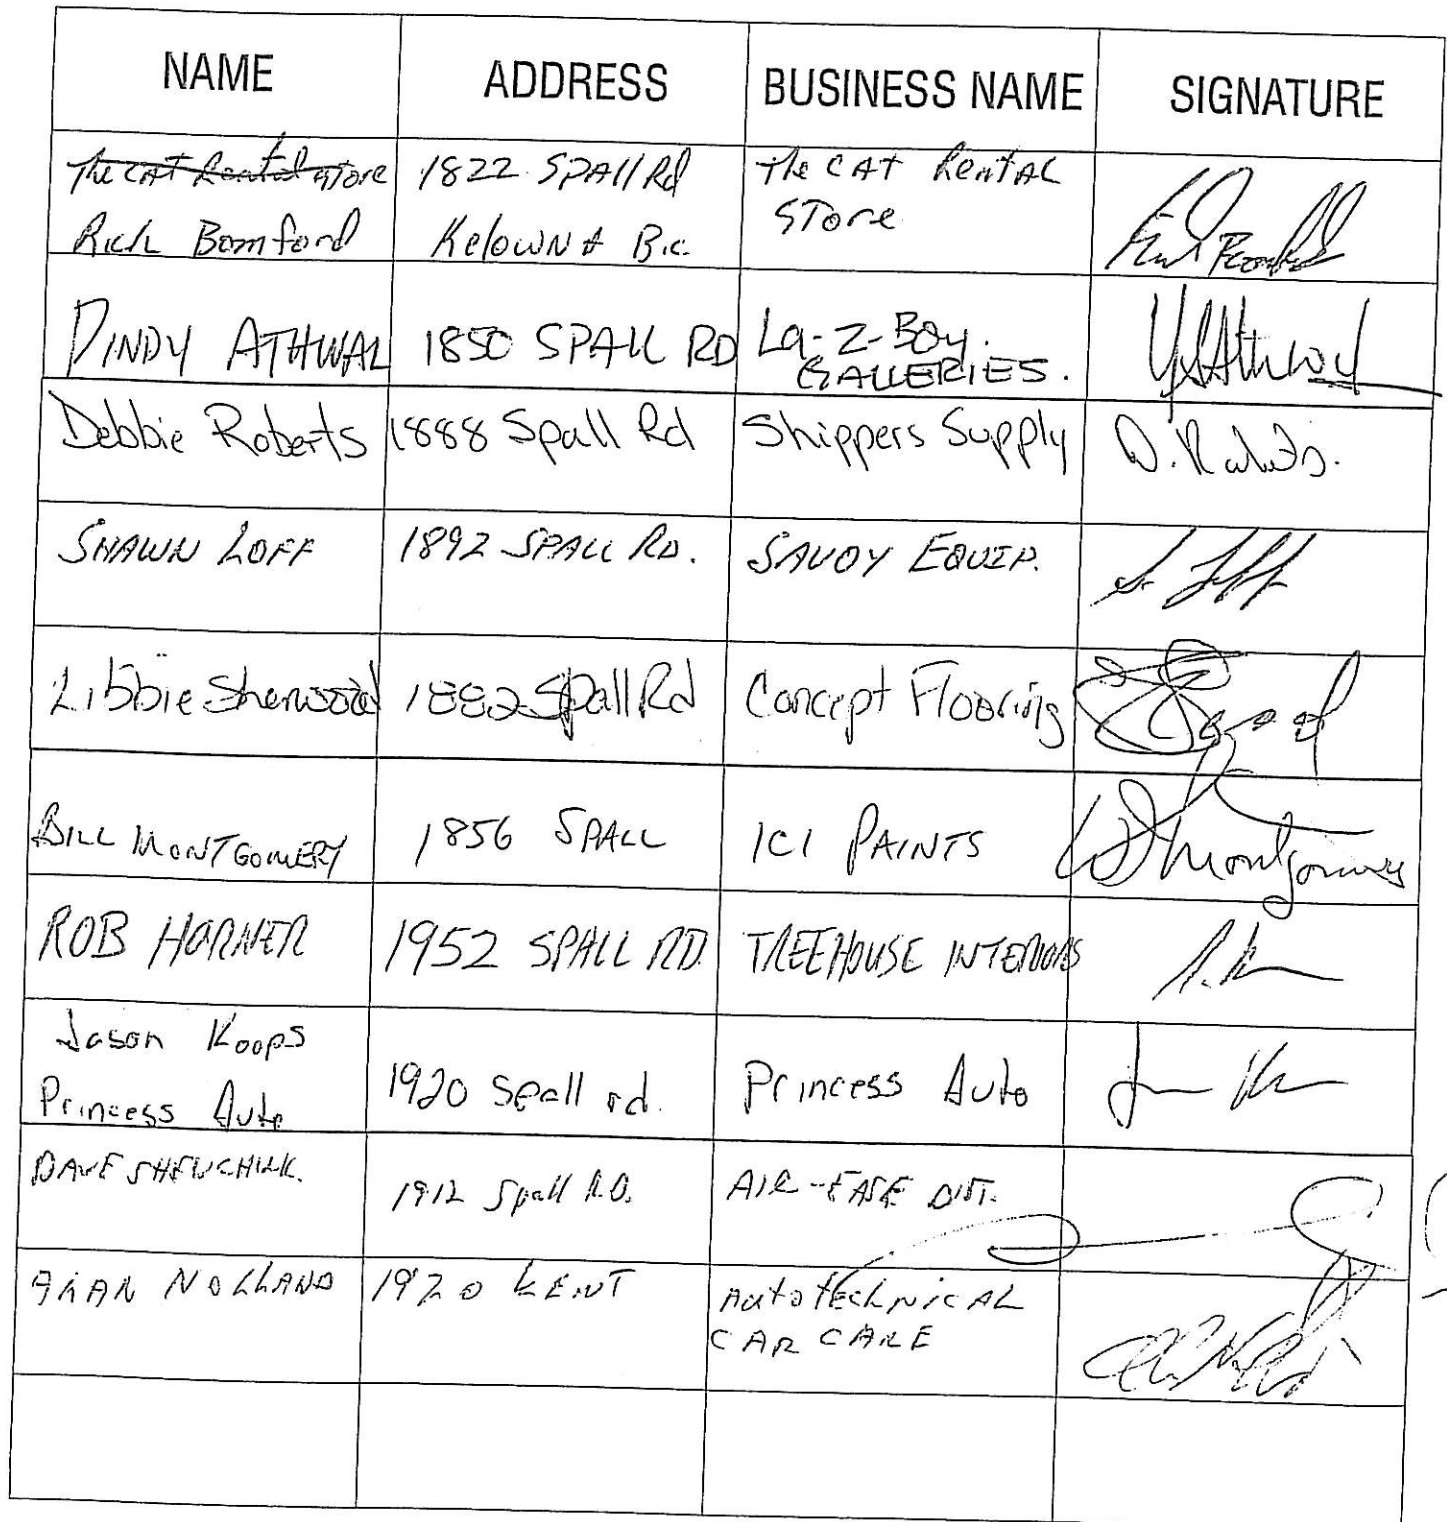 NAME ADDRESS BUSINESS NAME SIGNATURE
The CAT Rental Store 1822 Spall Rd The CAT Rental
Rich Bomford Kelowna B.C. Store
DINDY ATHWAL 1850 SPALL RD La-Z-Boy.
GALLERIES.
Debbie Roberts 1888 Spall Rd Shippers Supply D. Roberts.
SHAWN LOFF 1892 SPALL RD. SAVOY EQUIP.
Libbie Sherwood 1882 Spall Rd Concept Flooring
BILL MONTGOMERY 1856 SPALL ICI PAINTS
ROB HORNER 1952 SPALL RD. TREEHOUSE INTERIORS
Jason Koops
Princess Auto 1920 Spall rd. Princess Auto
DAVE 1912 Spall RD. AIR-EASE DIST.
NOLLAND 1920 KENT Autotechnical
CAR CARE